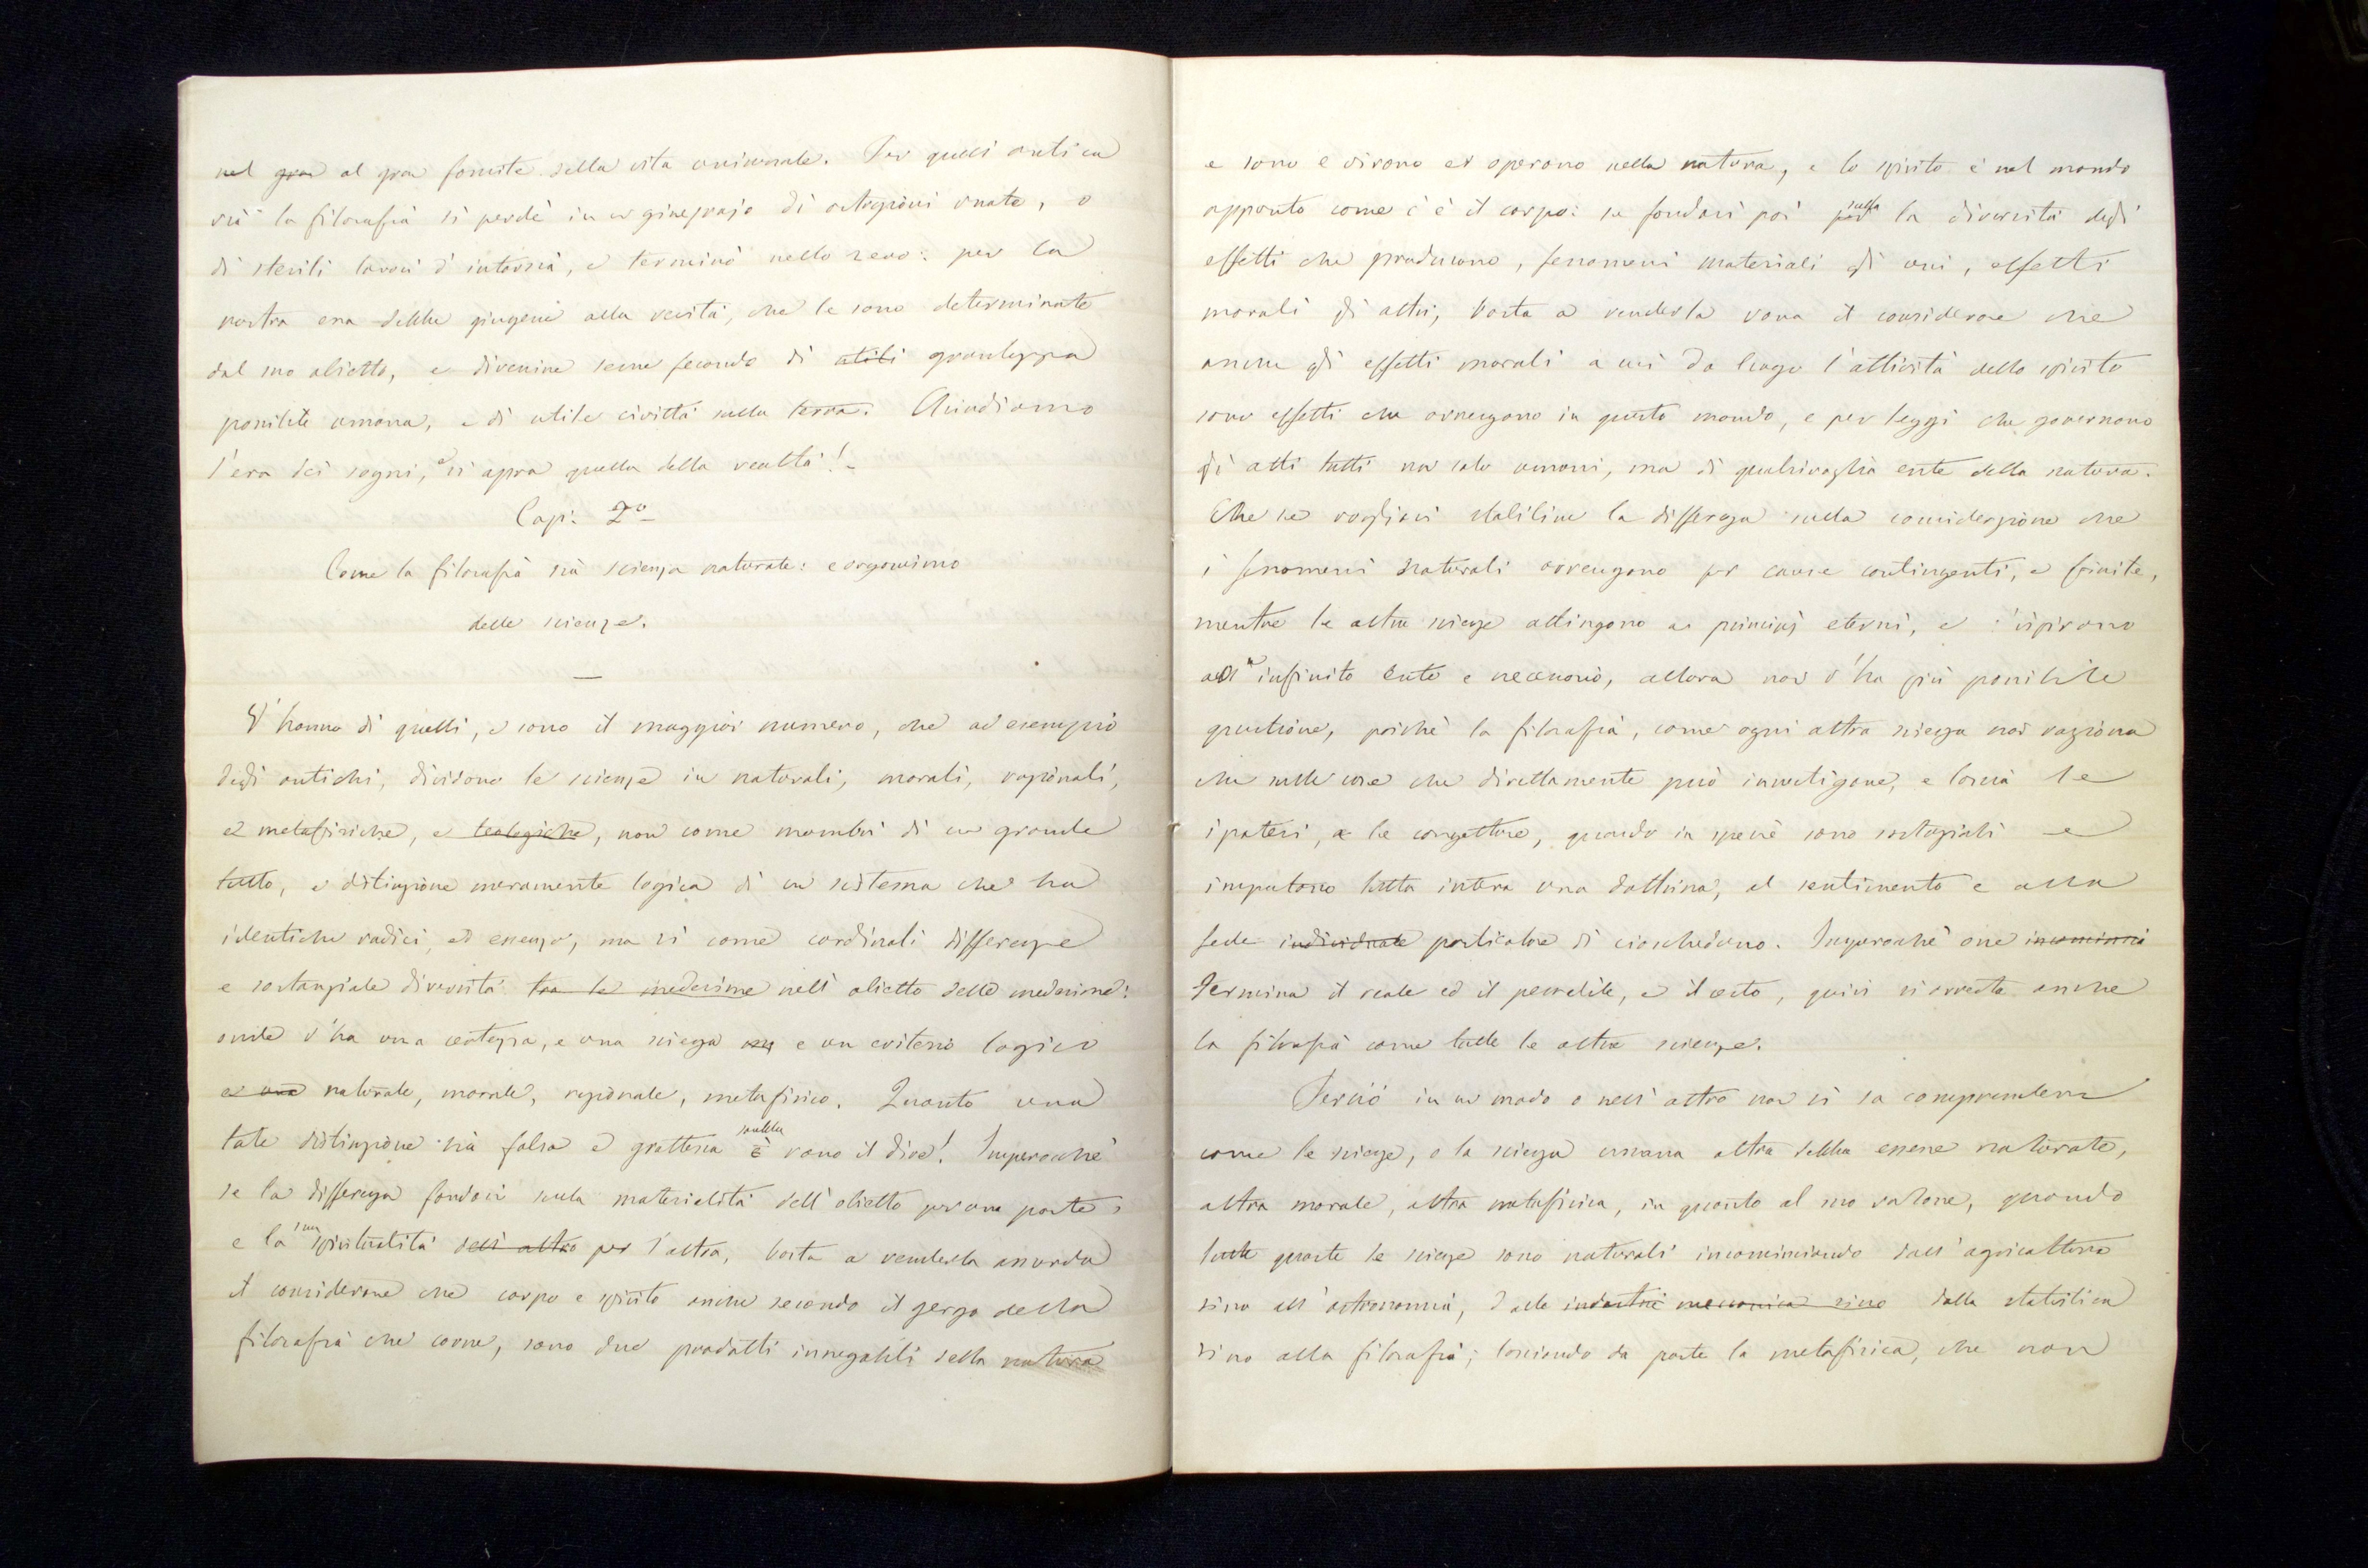 nel gran al gran fomite della vita universale. Per quell' antica
via la filosofia si perdè in un ginepraio di astrazioni vuote, o
di sterili lavori d' intarsia, e terminò nello zero: per la
nostra era debbe giugnere alla verità, che le sono determinate
dal suo obietto, e divenire seme fecondo di utili grandezza
possibile umana, e di utile civiltà sulla terra. Chiudiamo
l'era dei sogni, e si apra quella della realtà! –
Cap: 2º
Come la filosofia sia scienza naturale: e organismo
delle scienze.
V' hanno di quelli, e sono il maggior numero, che ad esempio
degli antichi, dividono le scienze in naturali, morali, razionali,
e metafisiche, e teologiche, non come membri di un grande
tutto, e distinzione meramente logica di un sistema che ha
identiche radici, ed essenza, ma sì come cardinali differenze
e sostanziale diversità tra le medesime nell' obietto delle medesime:
onde v'ha una certezza, e una scienza e un criterio logico
ed una naturale, morale, razionale, metafisico. Quanto una
tale distinzione sia falsa e grottesca sarebbe è vano il dire! Imperocchè
se la differenza fondasi sulla materialità dell' obietto per una parte,
e la sua spiritualità dell' altro per l'altra, basta a renderla assurda
il considerare che corpo e spirito anche secondo il gergo della
filosofia che corre, sono due prodotti innegabili della natura
e sono e vivono ed operano nella natura, e lo spirito è nel mondo
appunto come c'è il corpo: se fondasi poi per sulla la diversità degli
effetti che producono, fenomeni materiali gli uni, effetti
morali gli altri, basta a renderla vana il considerare che
anche gli effetti morali a cui dà luogo l'attività dello spirito
sono effetti che avvengono in questo mondo, e per leggi che governano
gli atti tutti non solo umani, ma di qualsivoglia ente della natura.
Che se vogliasi stabilire la differenza sulla considerazione che
i fenomeni naturali avvengono per cause contingenti, e finite,
mentre le altre scienze attingono a principj eterni, e s'ispirano
all' infinito ente e necessario, allora non v'ha più possibile
questione, poichè la filosofia, come ogni altra scienza non ragiona
che sulle cose che direttamente può investigare, e lascia le
ipotesi, e le congetture, quando in specie sono sostanziali e
imputano tutta intera una dottrina, al sentimento e alla
fede individuale particolare di ciascheduno. Imperocchè ove incomincia
termina il reale ed il pensabile, e il certo, quivi si arresta anche
la filosofia come tutte le altre scienze.
Perciò in un modo o nell' altro non si sa comprendere
come le scienze, o la scienza umana altra debba essere naturale,
altra morale, altra metafisica, in quanto al suo valore, quando
tutte quante le scienze sono naturali incominciando dall' agricoltura
sino all' astronomia, dalle industrie meccanica sino dalla statistica
sino alla filosofia; lasciando da parte la metafisica, che non